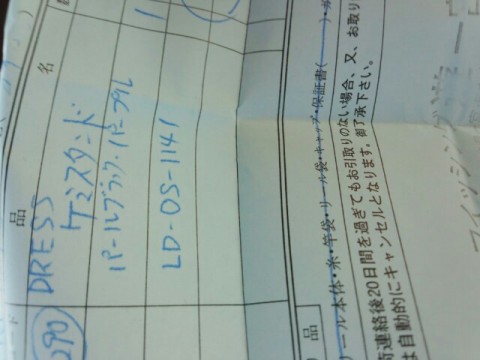 品 名
290
DRESS
ケミスタンド
パールブラック・パープル
LD-OS-1141
1
品
リール本体・糸・竿袋・リール袋・キャップ・保証書( )・ガ
後連絡後20日間を過ぎてもお引取りのない場合、又、お取り
は自動的にキャンセルとなります。御了承下さい。
フィッシング